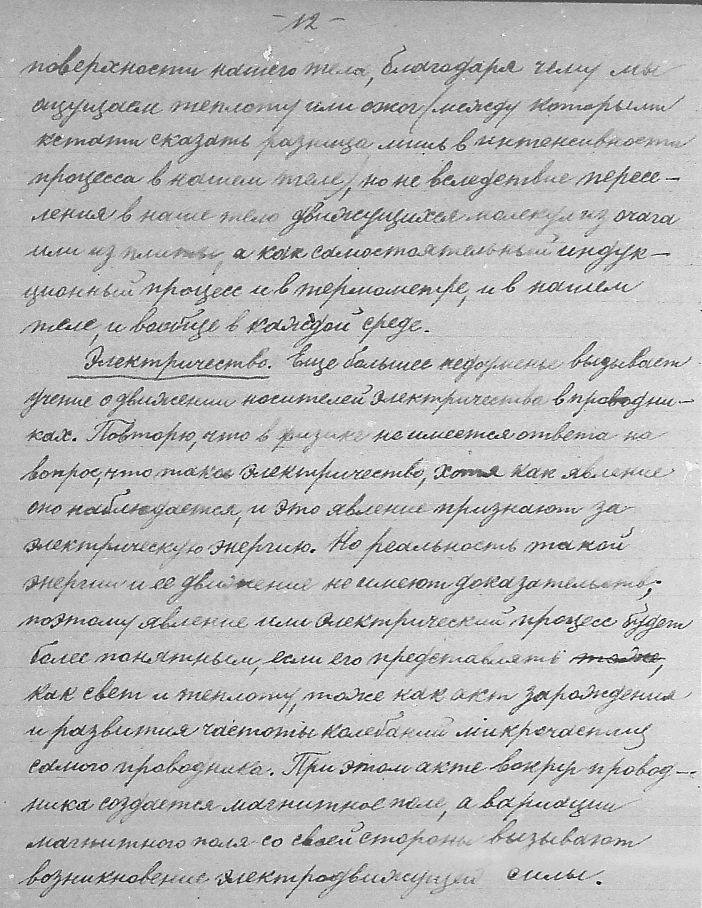 - 12 -
поверхности нашего тела, благодаря чему мы
ощущаем теплоту или ожог (между которыми
кстати сказать разница лишь в интенсивности
процесса в нашем теле), но не вследствие пересе-
ления в наше тело движущихся молекул из очага
или из плиты, а как самостоятельный индук-
ционный процесс и в термометре, и в нашем
теле, и вообще в каждой среде.
Электричество. Еще большее недоуменье вызывает
учение о движении носителей электричества в проводни-
ках. Повторю, что в физике не имеется ответа на
вопрос, что такое электричество, хотя как явление
оно наблюдается, и это явление признают за
электрическую энергию. Но реальность такой
энергии и ее движение не имеют доказательств;
поэтому явление или электрический процесс будет
более понятным, если его представлять тоже,
как свет и теплоту, тоже как акт зарождения
и развития частоты колебаний микрочастиц
самого проводника. При этом акте вокруг провод-
ника создается магнитное поле, а вариации
магнитного поля со своей стороны вызывают
возникновение электродвижущей силы.